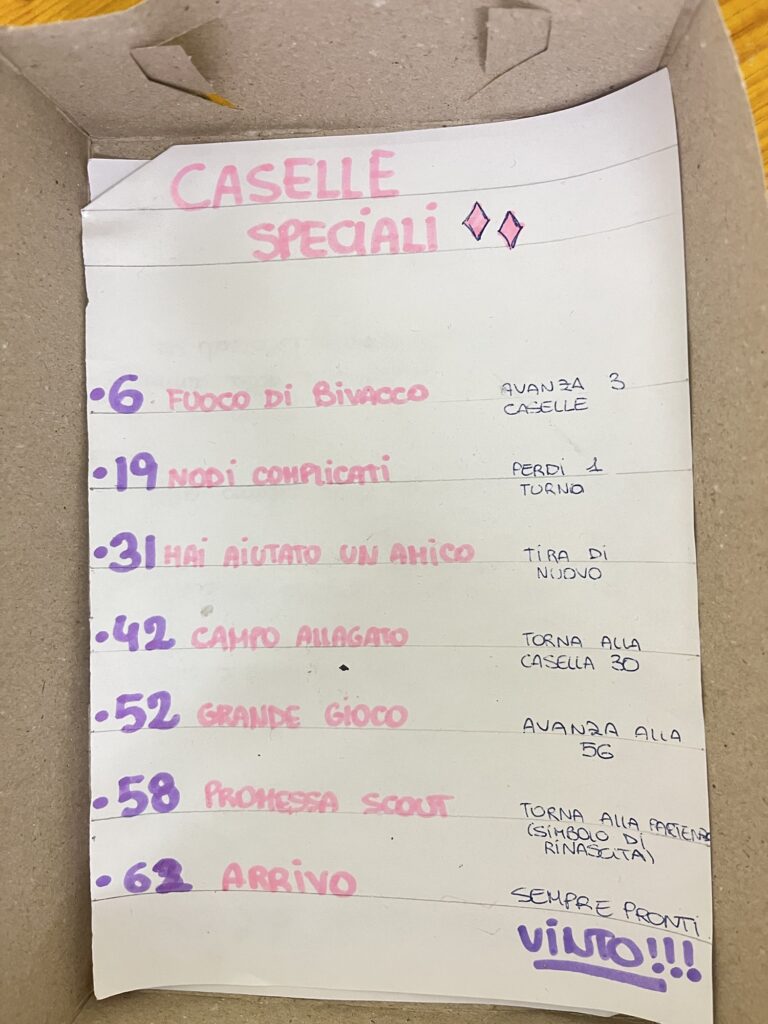 CASELLE
SPECIALI
•6 FUOCO DI BIVACCO AVANZA 3
CASELLE
•19 NODI COMPLICATI PERDI 1
TURNO
•31 HAI AIUTATO UN AMICO TIRA DI
NUOVO
•42 CAMPO ALLAGATO TORNA ALLA
CASELLA 30
•52 GRANDE GIOCO AVANZA ALLA
56
•58 PROMESSA SCOUT TORNA ALLA PARTENZA
(SIMBOLO DI
RINASCITA)
•63 ARRIVO SEMPRE PRONTI
VINTO!!!